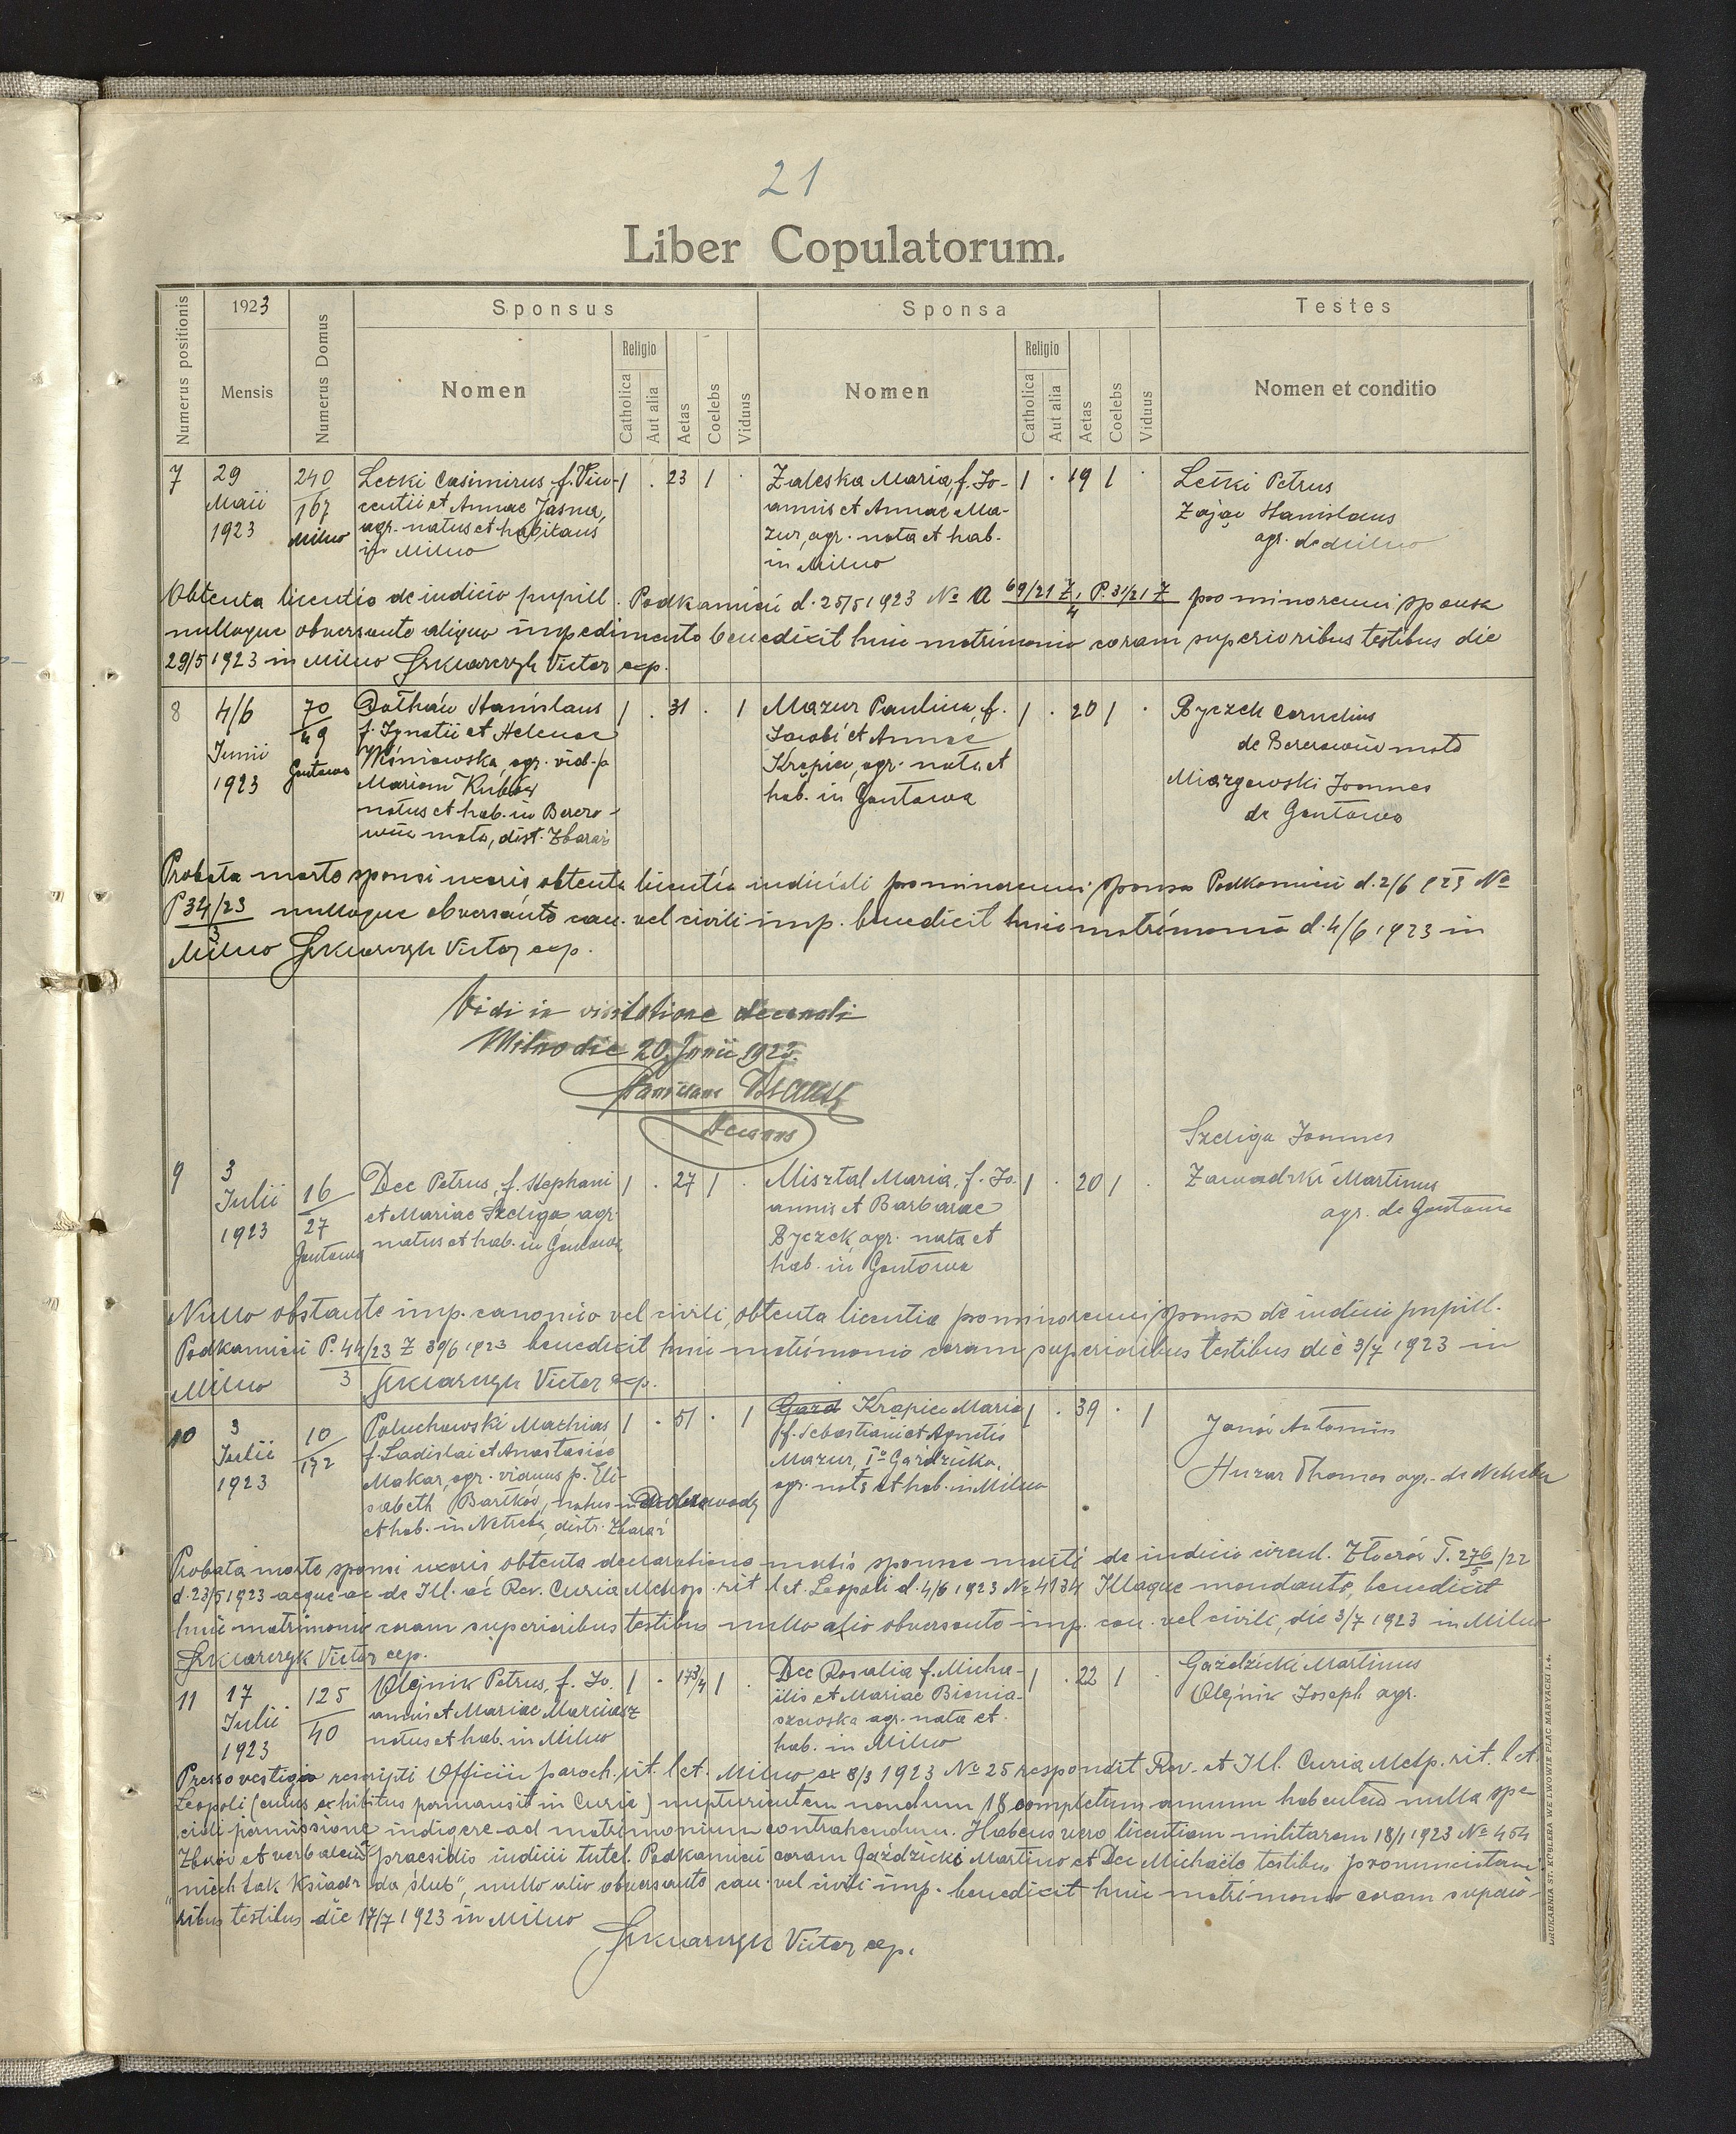 21
Liber Copulatorum.
Numerus positionis
1923
Mensis
Numerus Domus
Sponsus
Nomen
Religio
Catholica
Aut alia
Aetas
Coelebs
Viduus
Sponsa
Nomen
Religio
Catholica
Aut alia
Aetas
Coelebs
Viduus
Testes
Nomen et conditio
7
29
Maii
1923
240
167
Milno
Letki Casimirus, f. Vin-
centii et Annae Jasna,
agr. natus et habitans
in Milno
1 . 23 1 .
Zaleska Maria, f. Jo-
annis et Annae Ma-
zur, agr. nata et hab.
in Milno
1 . 19 1 .
Letki Petrus
Zając Stanislaus
agr. de Milno
Obtenta licentia de iudicio pupill. Podkamień d. 25/5 1923 № A 69/21 Z, P. 31/21 Z pro minorenni sponsa
4
nulloque obversante aliquo impedimento benedixit huic matrimonio coram superioribus testibus die
29/5 1923 in Milno Szkwarczyk Victor exp.
8
4/6
Junii
1923
70
49
Gontowa
Dołhań Stanislaus
f. Ignatii et Helenae
Wiśniowska, agr. vid. p.
Mariam
natus et hab. in Berezo-
wica mała, dist. Zbaraż
1 . 31 . 1
Mazur Paulina, f.
Jacobi et Annae
Krąpiec, agr. nata et
hab. in Gontowa
1 . 20 1 .
Byczek Cornelius
de Berezowica mała
Miązgowski Joannes
de Gontowa
Probata morte sponsi uxoris obtenta licentia iudiciali pro minorenni sponsa Podkamień d. 2/6 923 №
P 34/23 nulloque obversante can. vel civili imp. benedixit huic matrimonio d. 4/6 1923 in
3
Milno Szkwarczyk Victor exp.
Vidi in visitatione decanali
Milno die 20 Junii 1923.
Decanus
9
3
Julii
1923
16
27
Gontowa
Dec Petrus, f. Stephani
et Mariae Szeliga, agr.
natus et hab. in Gontowa
1 . 27 1 .
Misztal Maria, f. Jo-
annis et Barbarae
Byczek agr. nata et
hab. in Gontowa
1 . 20 1 .
Szeliga Joannes
Zawadzki Martinus
agr. de Gontowa
Nullo obstante imp. canonico vel civili, obtenta licentia pro minorenni sponsa de iudicii pupill.
Podkamień P. 44/23 Z 30/6 1923 benedixit huic matrimonio coram superioribus testibus die 3/7 1923 in
3
Milno Szkwarczyk Victor exp.
10
3
Julii
1923
10
172
Poluchowski Mathias
f. Ladislai et Anastasiae
Makar, agr. viduus p. Eli-
sabeth Bartków, natus in Dobrowody
et hab. in Netreba, distr. Zbaraż
1 . 51 . 1
Gazd Krąpiec Maria
f. Sebastiani et Agnetis
Mazur, I° Gaździcka,
agr. nata et hab. in Milno
1 . 39 . 1
Janów Antonius
Huzar Thomas agr. de Netreba
Probata morte sponsi uxoris obtenta declaratione mortis sponsae mariti de iudicio circul. Złoczów T. 276/22
5
d. 23/5 1923 aeque ac de Ill. ac Rev. Curia Metrop. rit. lat. Leopoli d. 4/6 1923 № 4134 Illaque mandante, benedixit
huic matrimonio coram superioribus testibus nullo alio obversante imp. can. vel civili, die 3/7 1923 in Milno
Szkwarczyk Victor exp.
11
17
Julii
1923
125
40
Olejnik Petrus, f. Jo-
annis et Mariae Marciasz
natus et hab. in Milno
1 . 17 3/4 1 .
Dec Rosalia f. Micha-
ëlis et Mariae Bienia-
szewska agr. nata et
hab. in Milno
1 . 22 1 .
Gaździcki Martinus
Olejnik Joseph agr.
Presso vestigio rescripti Officii paroch. rit. lat. Milno ex 8/3 1923 № 25 respondit Rev. et Ill. Curia Metp. rit. lat.
Leopoli (cuius exhibitus permansit in Curia) nupturientem nondum 18 completum annum habentem nulla spe-
ciali permissione indigere ad matrimonium contrahendum. Habens vero licentiam militarem 18/1 1923 № 464
et verbalem praesidis iudicii tutel. Podkamień coram Gaździcki Martino et Dec Michaële testibus pronunciatam
"niech tak Ksiądz da ślub", nullo alio obversante can. vel civili imp. benedixit huic matrimonio coram superio-
ribus testibus die 17/7 1923 in Milno
Szkwarczyk Victor exp.
DRUKARNIA ST. KÜBLERA WE LWOWIE PLAC MARYACKI L 4.